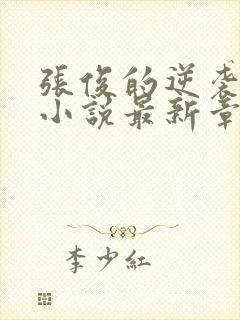 張俊的逆袭
小説最新章
李少紅